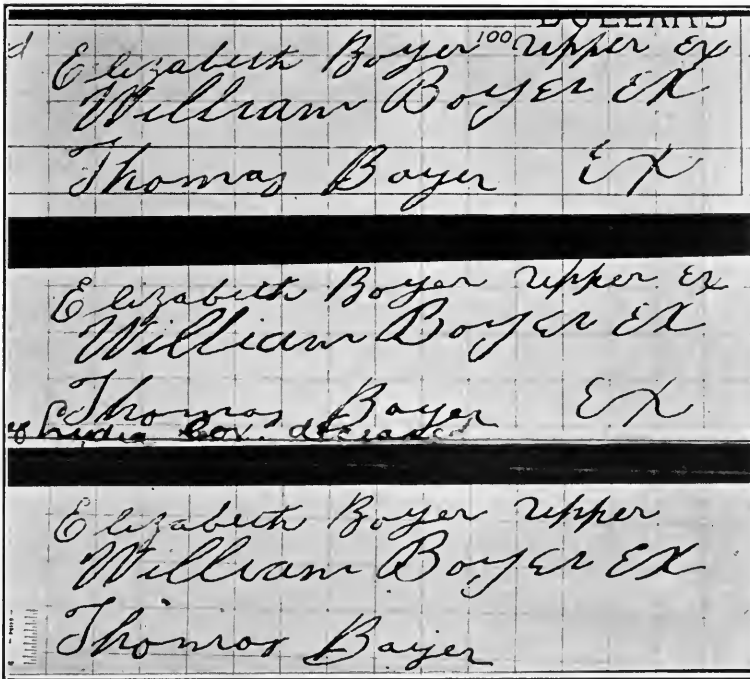 DOLLARS
d Elizabeth Boyer 100 Upper Ex
William Boyer EX
Thomas Boyer EX
Elizabeth Boyer Upper Ex
William Boyer EX
Thomas Boyer EX
of Lydia Cox. deceased
Elizabeth Boyer Upper
William Boyer EX
Thomas Boyer